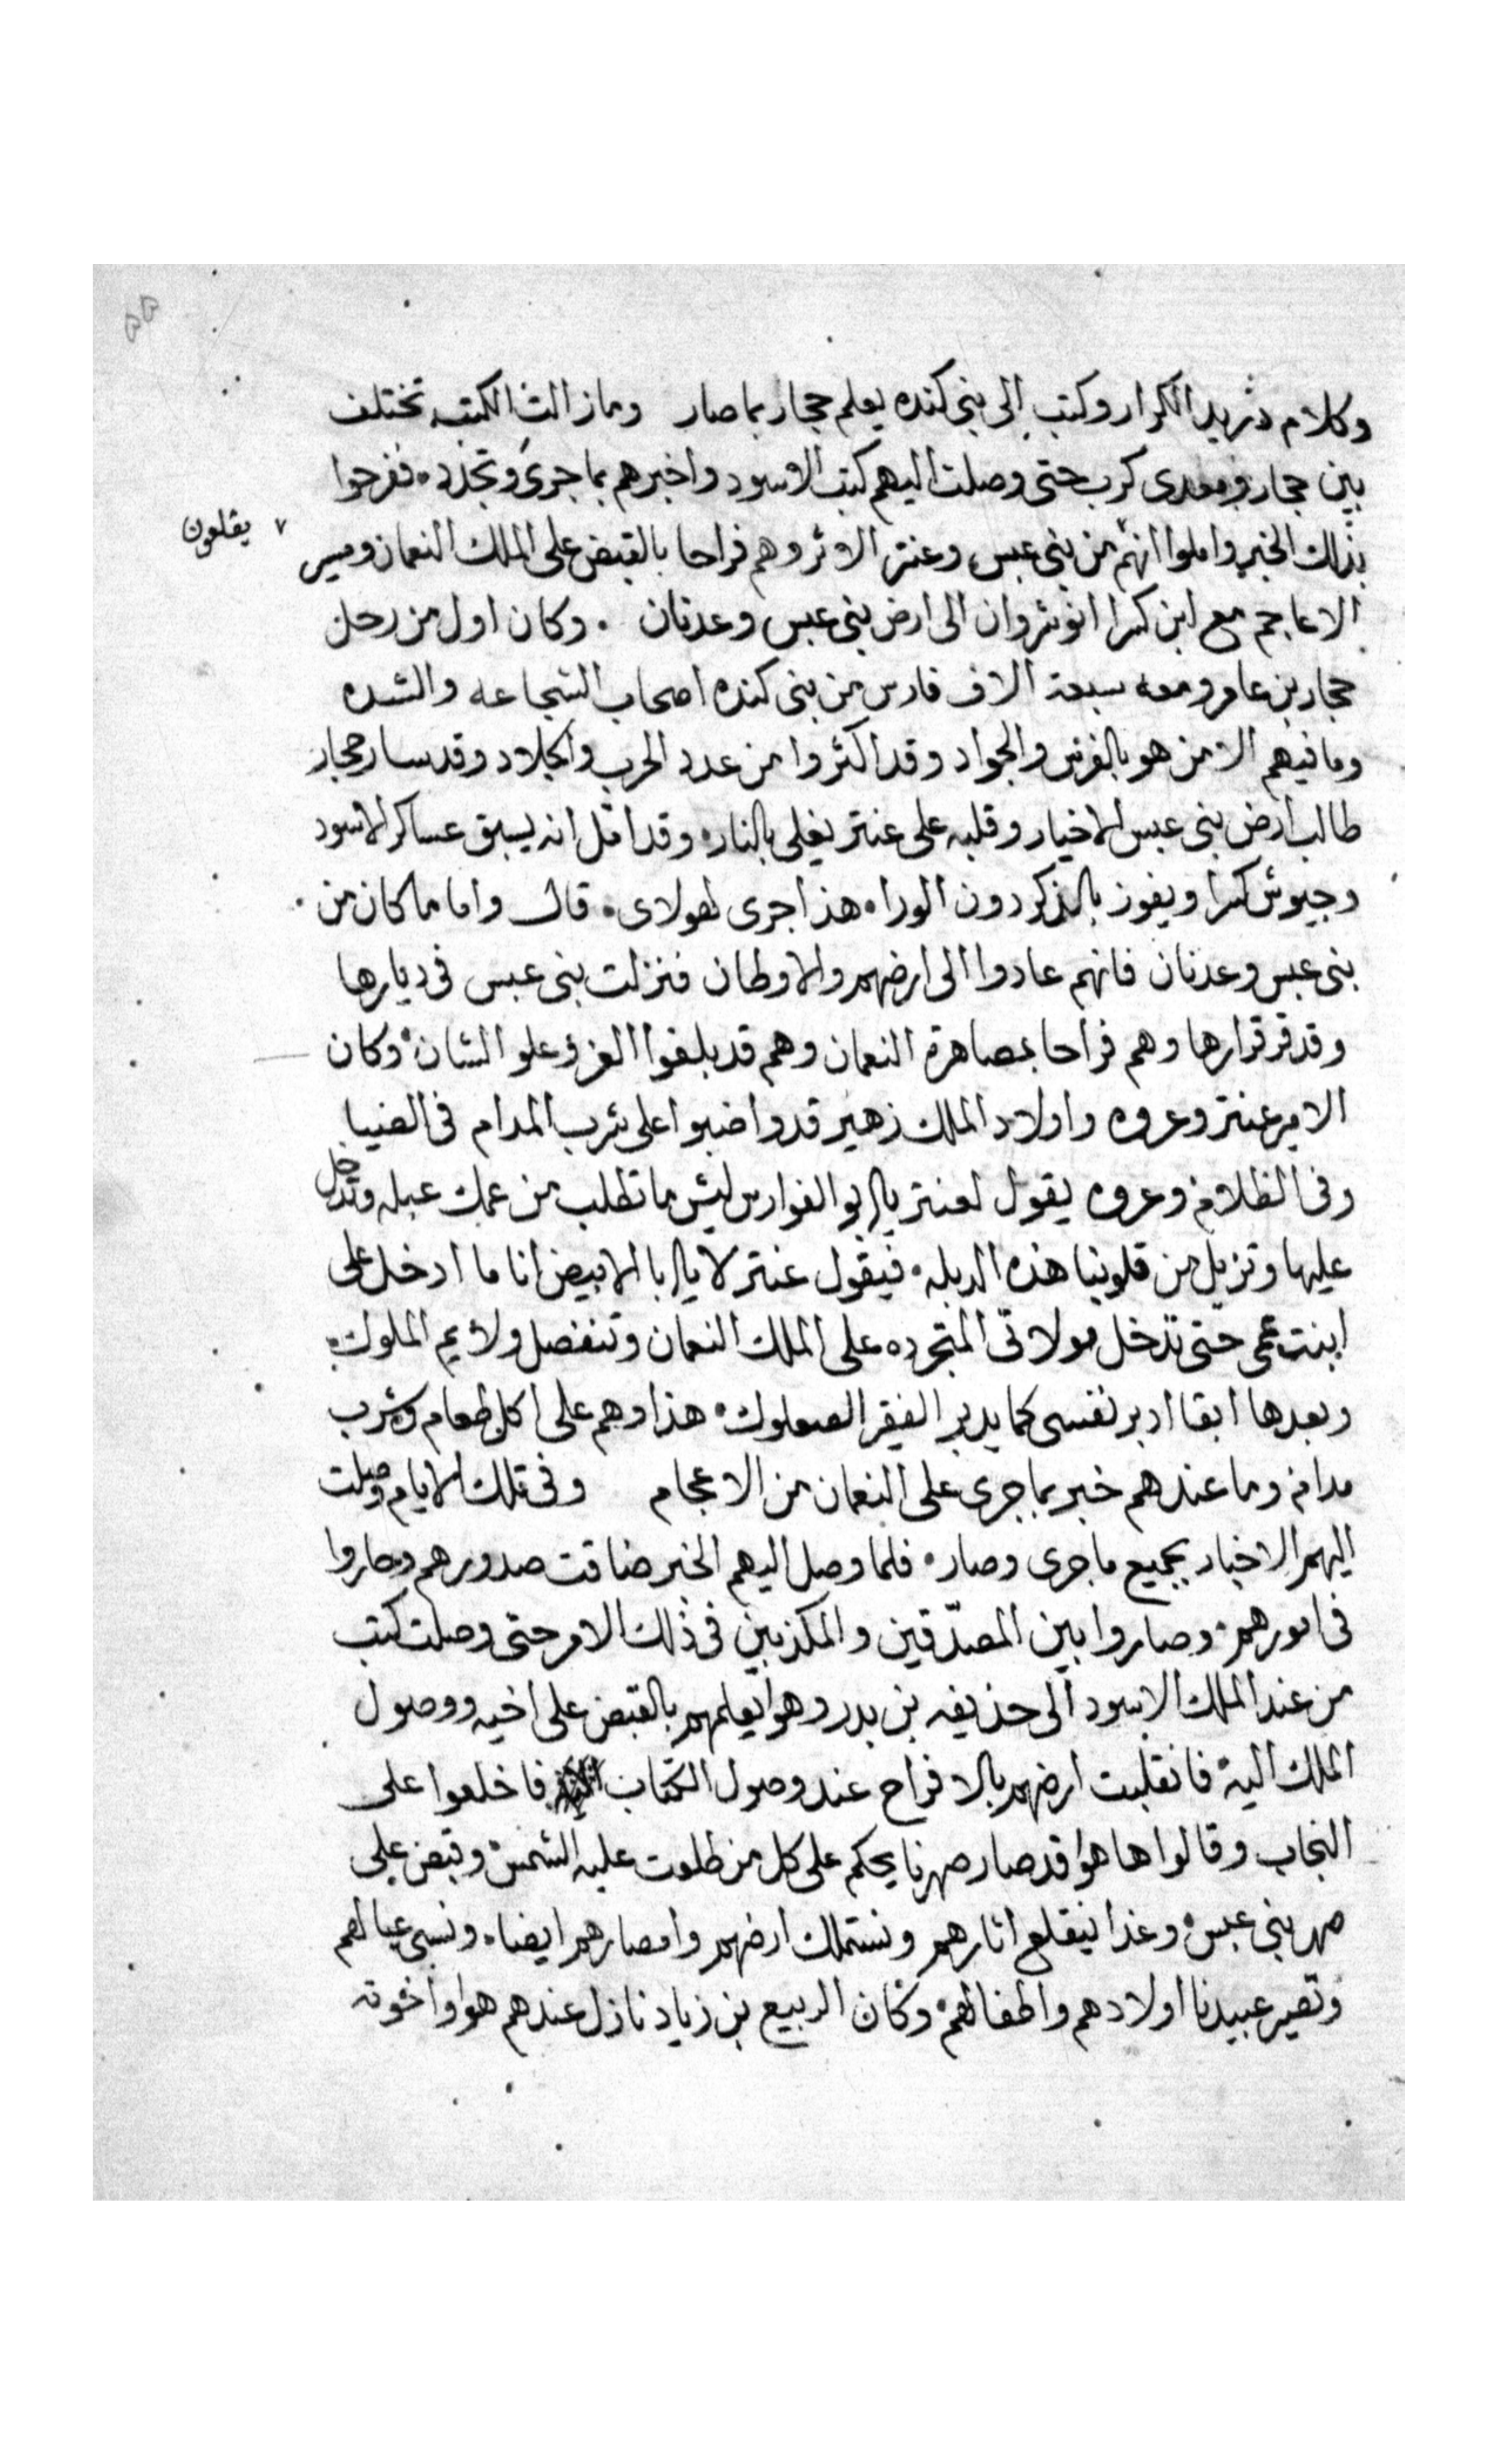 ٥٥
وكلام دريد الكرار وكتب الى بنى كنده يعلم حجار بما صار وما زالت الكتب تختلف
بين حجار ومعدى كرب حتى وصلت اليهم كتب الاسود واخبرهم بما جرى وتجدد ففرحوا
بذلك الخبر واملوا انهم من بنى عبس وعنتر الاثر وهم فراحا بالقبض على الملك النعمان ومسير
يقلعون
الاعاجم مع ابن كسرا انوشروان الى ارض بنى عبس وعدنان . وكان اول من رحل
حجار بن عامر ومعه سبعة الاف فارس من بنى كنده اصحاب الشجاعه والشده
وما فيهم الا من هو بالفرس والجواد وقد اكثروا من عدد الحرب والجلاد وقد سار حجار
طالب ارض بنى عبس الاخيار وقلبه على عنتر يغلى بالنار وقد امل انه يسبق عساكر الاسود
وجيوش كسرا ويفوز بالذكر دون الورا هذا جرى لهولاى قال واما ما كان من
بنى عبس وعدنان فانهم عادوا الى ارضهم والاوطان فنزلت بنى عبس فى ديارها
وقد قر قرارها وهم فراحا بمصاهرة النعمان وهم قد بلغوا العز وعلو الشان وكان
الامير عنتر وعروه واولاد الملك زهير قد واضبوا على شرب المدام فى الضيا
وفى الظلام وعروه يقول لعنتر يا ابو الفوارس ليش ما تطلب من عمك عبله وتدخل
عليها وتزيل من قلوبنا هذه الدبله فيقول عنتر لا يا ابا الابيض انا ما ادخل على
ابنت عمى حتى تدخل مولاتى المتجرده على الملك النعمان وتنفصل ولايم الملوك
وبعدها ابقا ادبر نفسى كما يدبر الفقير الصعلوك هذا وهم على اكل طعام وشرب
مدام وما عندهم خبر بما جرى على النعمان من الاعجام وفى تلك الايام وصلت
اليهم الاخبار بجميع ما جرى وصار فلما وصل اليهم الخبر ضاقت صدورهم وحاروا
فى امورهم وصاروا بين المصدّقين والمكذبين فى ذلك الامر حتى وصلت كتب
من عند الملك الاسود الى حذيفه بن بدر وهو يعلمهم بالقبض على اخيه ووصول
الملك اليه فانقلبت ارضهم بالافراح عند وصول الكتاب فاخلعوا على
النجاب وقالوا ها هوا قد صار صهرنا يحكم على كل من طلعت عليه الشمس وقبض على
صهر بنى عبس وغذا نيقلع اثارهم ونستملك ارضهم وامصارهم ايضا ونسبى عيالهم
وتصير عبيدنا اولادهم واطفالهم وكان الربيع بن زياد نازل عندهم هوا واخوته